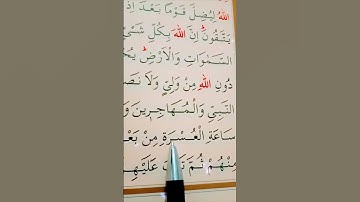 اللّٰهُ لِيُضِلَّ قَوْمًا بَعْدَ اِذْ
يَتَّقُونَۜ اِنَّ اللّٰهَ بِكُلِّ شَيْ
السَّمٰوَاتِ وَالْاَرْضِۜ
دُونِ اللّٰهِ مِنْ وَلِيٍّ وَلَا نَص
النَّبِيِّ وَالْمُهَاجِرٖينَ وَ
سَاعَةِ الْعُسْرَةِ مِنْ بَعْ
مِنْهُمْ ثُمَّ عَلَيْهِ